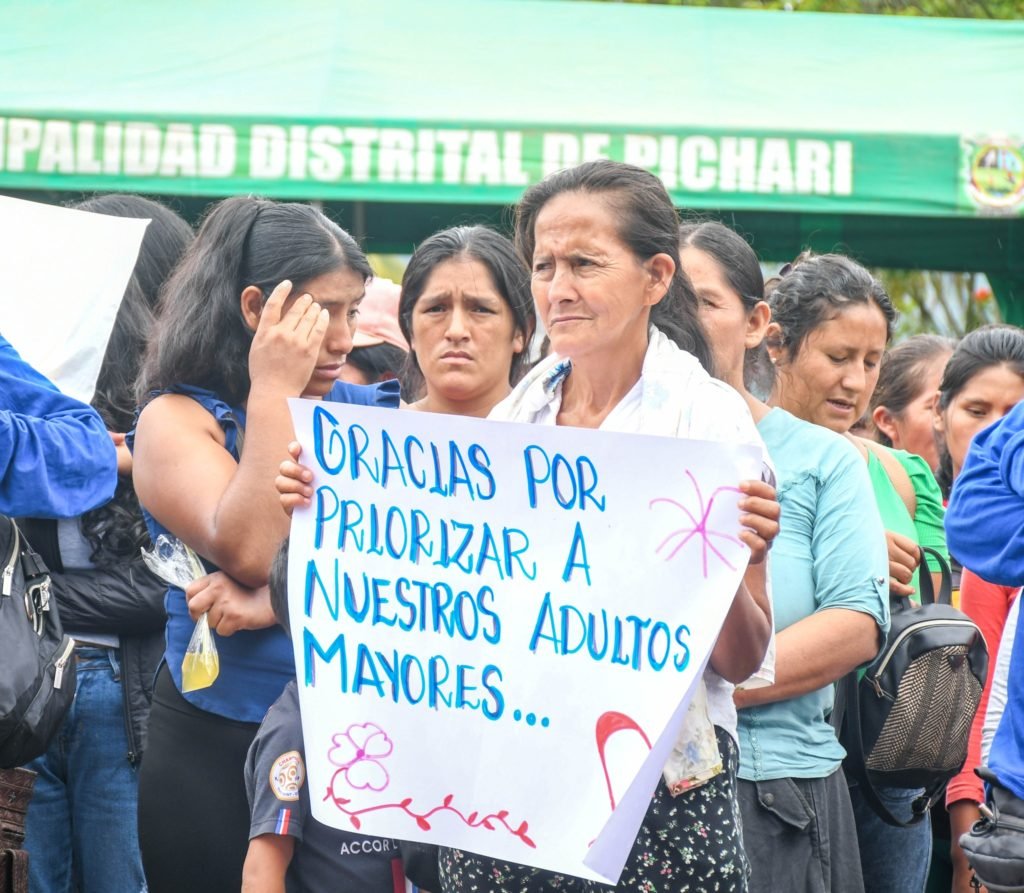 IPALIDAD DISTRITAL DE PICHARI
GRACIAS POR
PRIORIZAR A
NUESTROS ADULTOS
MAYORES...
ACCORD